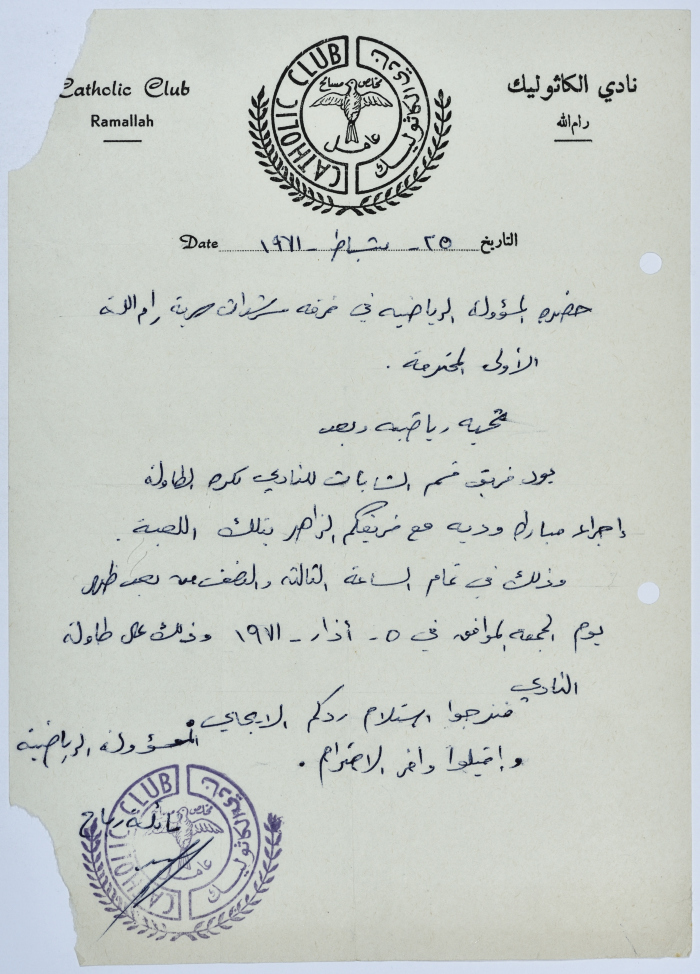 Catholic Club
Ramallah
نادي الكاثوليك
رام الله
CATHOLIC CLUB
نادي الكاثوليك
مخلص مسامح
عامل
Date ٢٥ - شباط - ١٩٧١ التاريخ
حضرة المسؤولة الرياضيه في فرقة مرشدات سرية رام الله
الأولى المحترمة .
تحيه رياضيه وبعد
يود فريق قسم الشابات للنادي بكرة الطاولة
إجراء مباراه وديه مع فريقكم الزاهر بتلك اللعبة .
وذلك في تمام الساعة الثالثة والنصف من بعد ظهر
يوم الجمعه الموافق في ٥ - أذار - ١٩٧١ وذلك على طاولة
النادي
فنرجوا استلام ردكم الايجابي
واقبلوا وافر الاحترام .
المسؤولة الرياضية
CATHOLIC CLUB
نادي الكاثوليك
مخلص
عامل